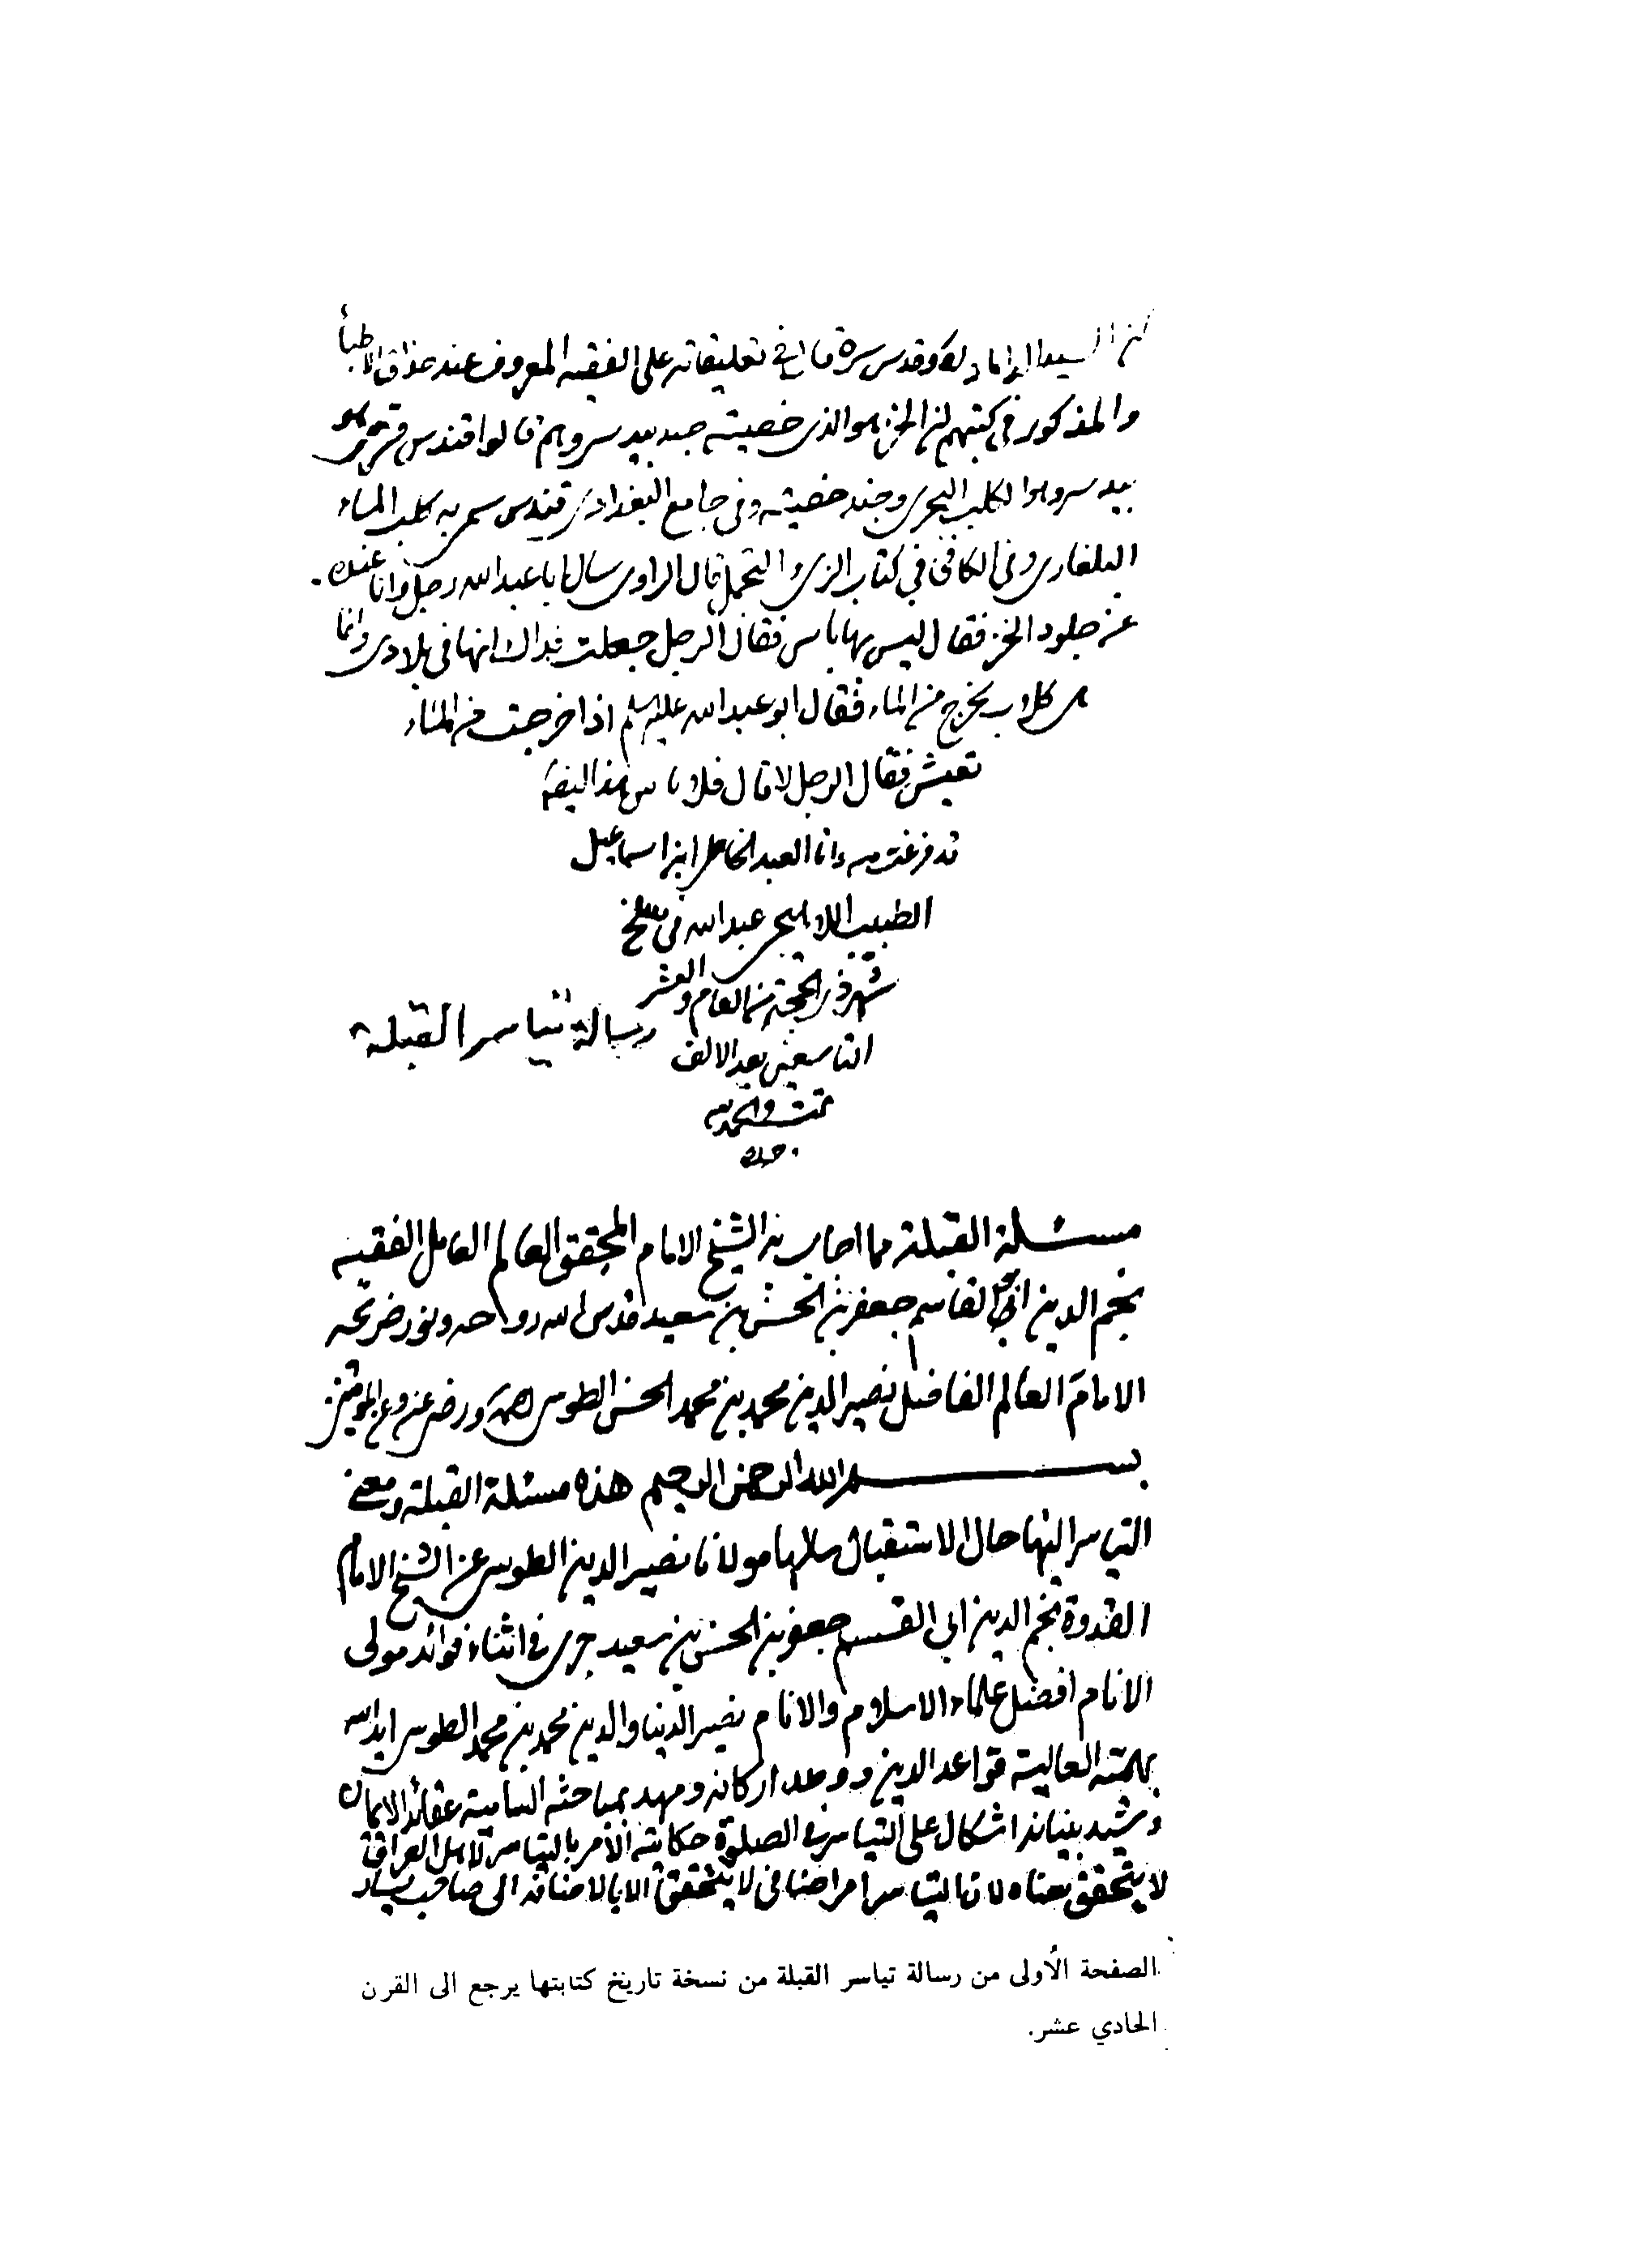 السيد الداماد قدس سره قال في تعليقاته على الفقيه المعروف عند حذاق الاطبأ
والمذكور في كتبهم ان الخز هو الذي خصيته جند بيدستر وهم قالوا قندس
بيدستر وهو الكلب البحري وجند خصيته وفي جامع البغدادي قندس سمي به كلب الماء
البلغاري وفي الكافي في كتاب الزي والتجمل قال الراوي سأل ابا عبد الله رجل وانا عنده
عن جلود الخز فقال ليس بها باس فقال الرجل جعلت فداك انها في بلادي وانما
هي كلاب يخرج من الماء فقال ابو عبد الله عليه السلم اذا خرجت من الماء
تعيش فقال الرجل لا قال فلا باس
قد فرغت منه وانا العبد الخاطي ابن اسماعيل
الطبيب اللاهيجي عبد الله في سلخ
شهر ذي الحجة من العام والعشر
التاسعين بعد الالف
رسالة تياسر القبلة
تمت والحمد لله
مسئلة القبلة مما اجاب به الشيخ الامام المحقق العالم العامل الفقيه
نجم الدين ابي القاسم جعفر بن الحسن بن سعيد قدس الله روحه ونور ضريحه
الامام العالم الفاضل نصير الدين محمد بن محمد الحسن الطوسي ورضي عنه وعن المؤمنين
بسم الله الرحمن الرحيم هذه مسئلة القبلة ومعنى
التياسر اليها حال الاستقبال سالها مولانا نصير الدين الطوسي عن الشيخ الامام
القدوة نجم الدين ابي القسم جعفر بن الحسن بن سعيد جرى في اثناء فوائد مولى
الانام افضل علماء الاسلام والانام نصير الدنيا والدين محمد بن محمد الطوسي ايد الله
بهمته العالية قواعد الدين ووطد اركانه ومهد بمباحثه السامية عقائد الايمان
وشيد بنيانه اشكال على التياسر في الصلوة حكايته الامر بالتياسر لاهل العراق
لا يتحقق معناه لان التياسر امر اضافي لا يتحقق الا بالاضافة الى صاحب يسار
الصفحة الأولى من رسالة تياسر القبلة من نسخة تاريخ كتابتها يرجع الى القرن
الحادي عشر.